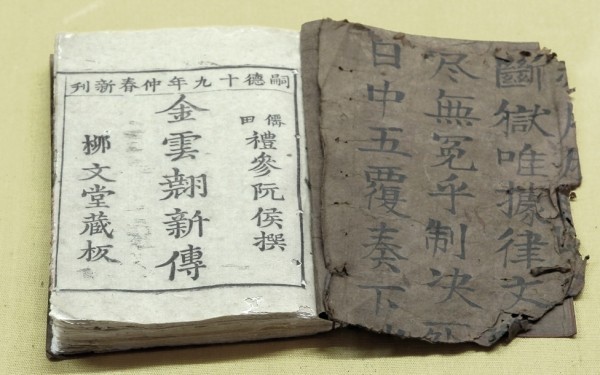 斷獄唯據律文
尽無冤乎制决
日中五覆奏下
嗣德十九年仲春新刊
僊田禮參阮侯撰
金雲翹新傳
柳文堂藏板